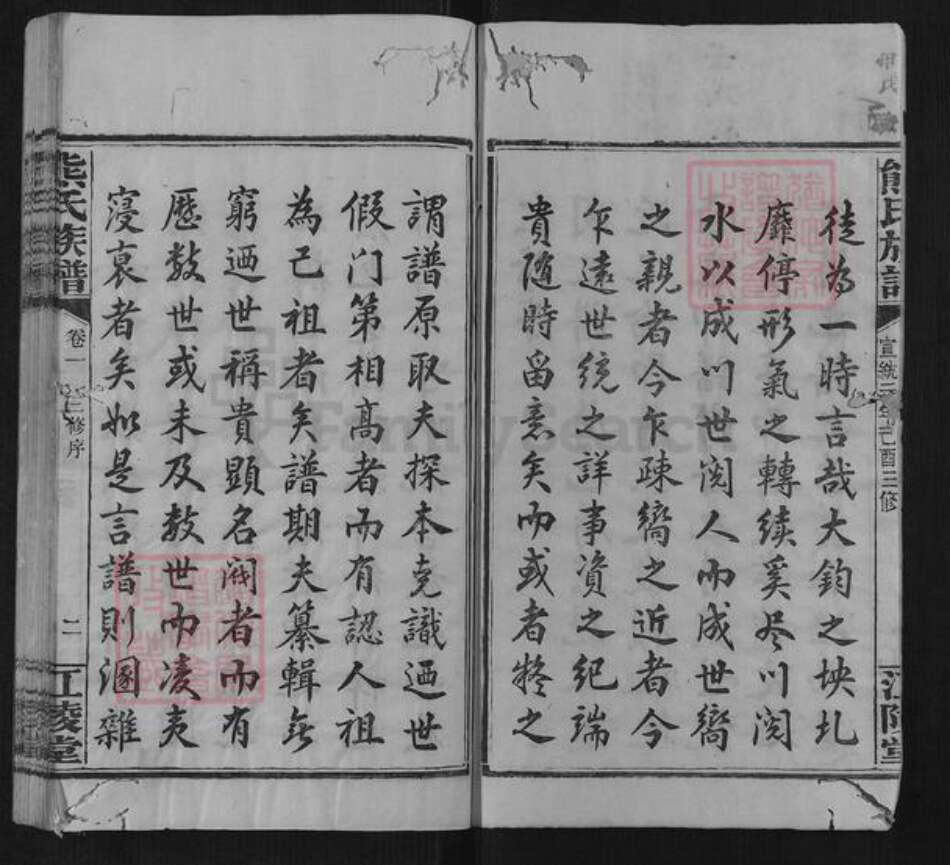 熊氏族譜
宣統元年己酉三修
江陵堂
徒為一時言哉大鈞之坱圠
靡停形氣之轉續奚尽川閱
水以成川世閱人而成世嚮
之親者今乍疎嚮之近者今
乍遠世统之詳事資之紀端
貴随時留意矣而或者擬之
謂譜原取夫探本克識迺世
假门第相高者而有認人祖
為己祖者矣譜期夫纂輯無
窮迺世稱貴顯名閥者而有
歷数世或未及数世而凌夷
寖衰者矣如是言譜則溷雜
熊氏族譜
卷一
三修序
二
江陵堂
FamilySearch